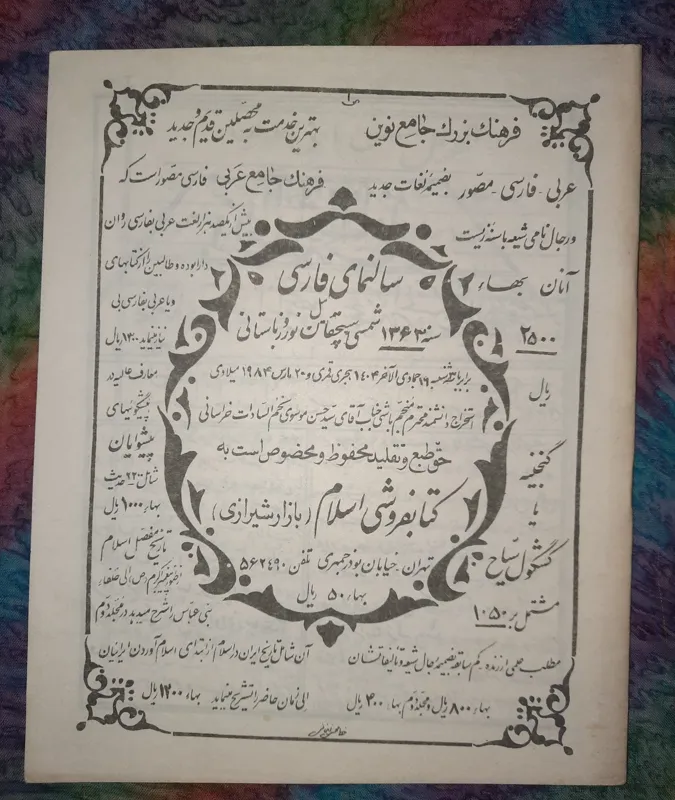 فرهنك بزرك جامع نوین بهترین خدمت به محصلین قدیم و جدید
عربی - فارسی - مصور بضمیمه لغات جدید فرهنك جامع عربی فارسی مصور است که
ورجال نامی شیعه باسنه زیست
آنان بهاء
۲۵۰۰
ریال
گنجینه
یا
کشکول سیاح
مشتمل بر ۱۰۵۰
بیش از یکصد هزار لغت عربی بفارسی روان
دارا بوده و طالبین را از کتابهای
ویا عربی بفارسی بی
نیاز مینماید ۱۳۰۰ ریال
معارف عالیه در
پیشگوییهای
پیشوایان
شامل ۲۲۰ حدیث
بهاء ۱۰۰۰ ریال
تاریخ مفصل اسلام
از ظهور پیغمبر اکرم (ص) الی خلفاء
بنی عباس را شرح میدهد در مجلد دوم
سالنمای فارسی
سنه ۱۳۶۳ شمسی سیچقان ئیل نوروز باستانی
برابر با سه شنبه ۱۶ جمادی الآخر ۱۴۰۴ هجری قمری و ۲۰ مارس ۱۹۸۴ میلادی
استخراج دانشمند محترم منجم باشی جناب آقای سید حسن موسوی نجم السادات خراسانی
حق طبع و تقلید محفوظ و مخصوص است به
کتابفروشی اسلام (بازار شیرازی)
تهران - خیابان بوذرجمهری تلفن ۵۶۲۴۹۰
بهاء ۵۰ ریال
مطلب علمی ارزنده - کم سابقه بضمیمه رجال شیعه و تالیفاتشان آن شامل تاریخ ایران در اسلام از ابتدای اسلام آوردن ایرانیان
بهاء ۸۰۰ ریال و مجلد دوم بهاء ۴۰۰ ریال الی زمان حاضر را تشریح مینماید بهاء ۱۲۰۰ ریال